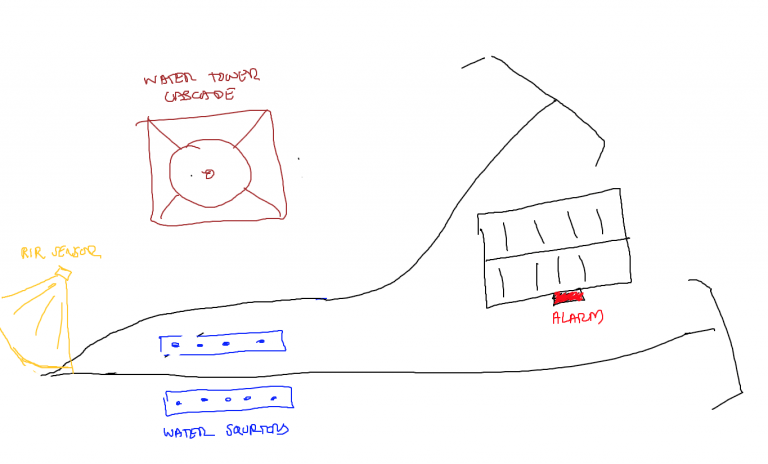 WATER TOWER
CASCADE
PIR SENSOR
ALARM
WATER SQUIRTERS